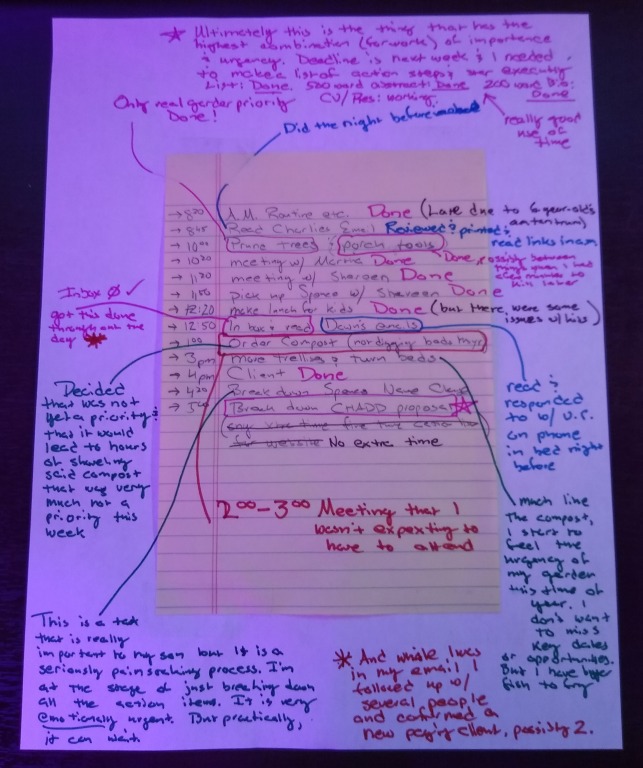 * Ultimately this is the thing that has the
highest combination (for work) of importance
& urgency. Deadline is next week & I needed
to make a list of action steps & start executing
List: Done. 500 word abstract: Done 200 word bio:
Done
CV/Res: working.
really good
use of
time
Only real garden priority
Done!
Did the night before
→ 8:20 A.M. Routine etc. Done (Late due to 6-year-old's
tantrum)
→ 8:45 Read Charlies Email Reviewed & printed &
read links in a.m.
→ 10:00 Prune Trees & porch tools
Done, possibly between
→ 10:30 meeting w/ Done
→ 11:30 meeting w/ Shereen Done
→ 1:00 pick up Spore w/ Shereen Done
→ 12:20 make lunch for kids Done (but there were some
issues w/ kids)
→ 12:50 In box & read Dawn's emails
→ 1:00 Order Compost (not digging beds thyr)
→ 3pm more trellis & turn beds
→ 4pm Client Done
→ 4:30 Break down Spores Name Change
→ 5:00 Break down CHADD proposal *
any xtra time fine tune
for website No extra time
Inbox 0 ✓
got this done
throughout the
day *
2:00-3:00 Meeting that I
wasn't expecting to
have to attend
Decided
that was not
yet a priority &
that it would
lead to hours
of shoveling
said compost
that was very
much not a
priority this
week
read &
responded
to w/
on phone
in bed night
before
much like
The compost,
I start to
feel the
urgency of
my garden
this time of
year. I
don't want
to miss
key dates
or opportunities.
But I have bigger
fish to fry
This is a task
that is really
important to my son but it is a
seriously painstaking process. I'm
at the stage of just breaking down
all the action items. It is very
emotionally urgent. But practically,
it can wait
* And while I was
in my email I
followed up w/
several people
and confirmed a
new paying client, possibly 2.